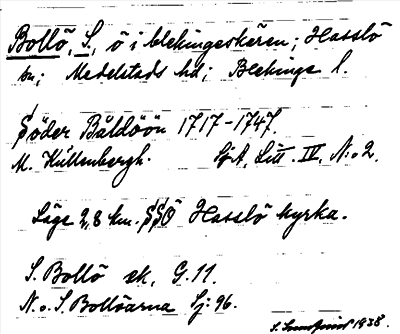 Bollö, S., ö i blekingeskären; Hasslö
sn; Medelstads hd; Blekinge l.
Söder Båldöön 1717-1747.
M. Kullenbergh. Sj A, Litt. IV, N:o 2.
Läge 2,8 km. SSÖ Hasslö kyrka.
S. Bollö ek. G. 11.
N. o. S. Bollöarna Sj: 96.
1938.